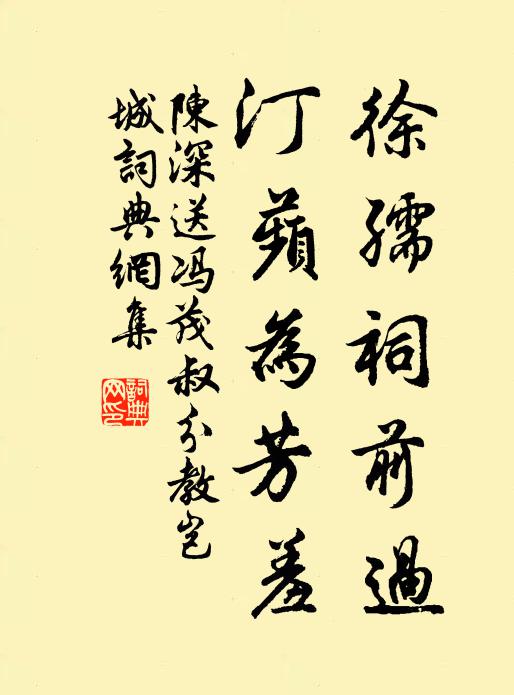 徐孺祠前過
汀蘋為芳羞
陳深送冯茂叔分教邑
城詞典網集
詞典
网印